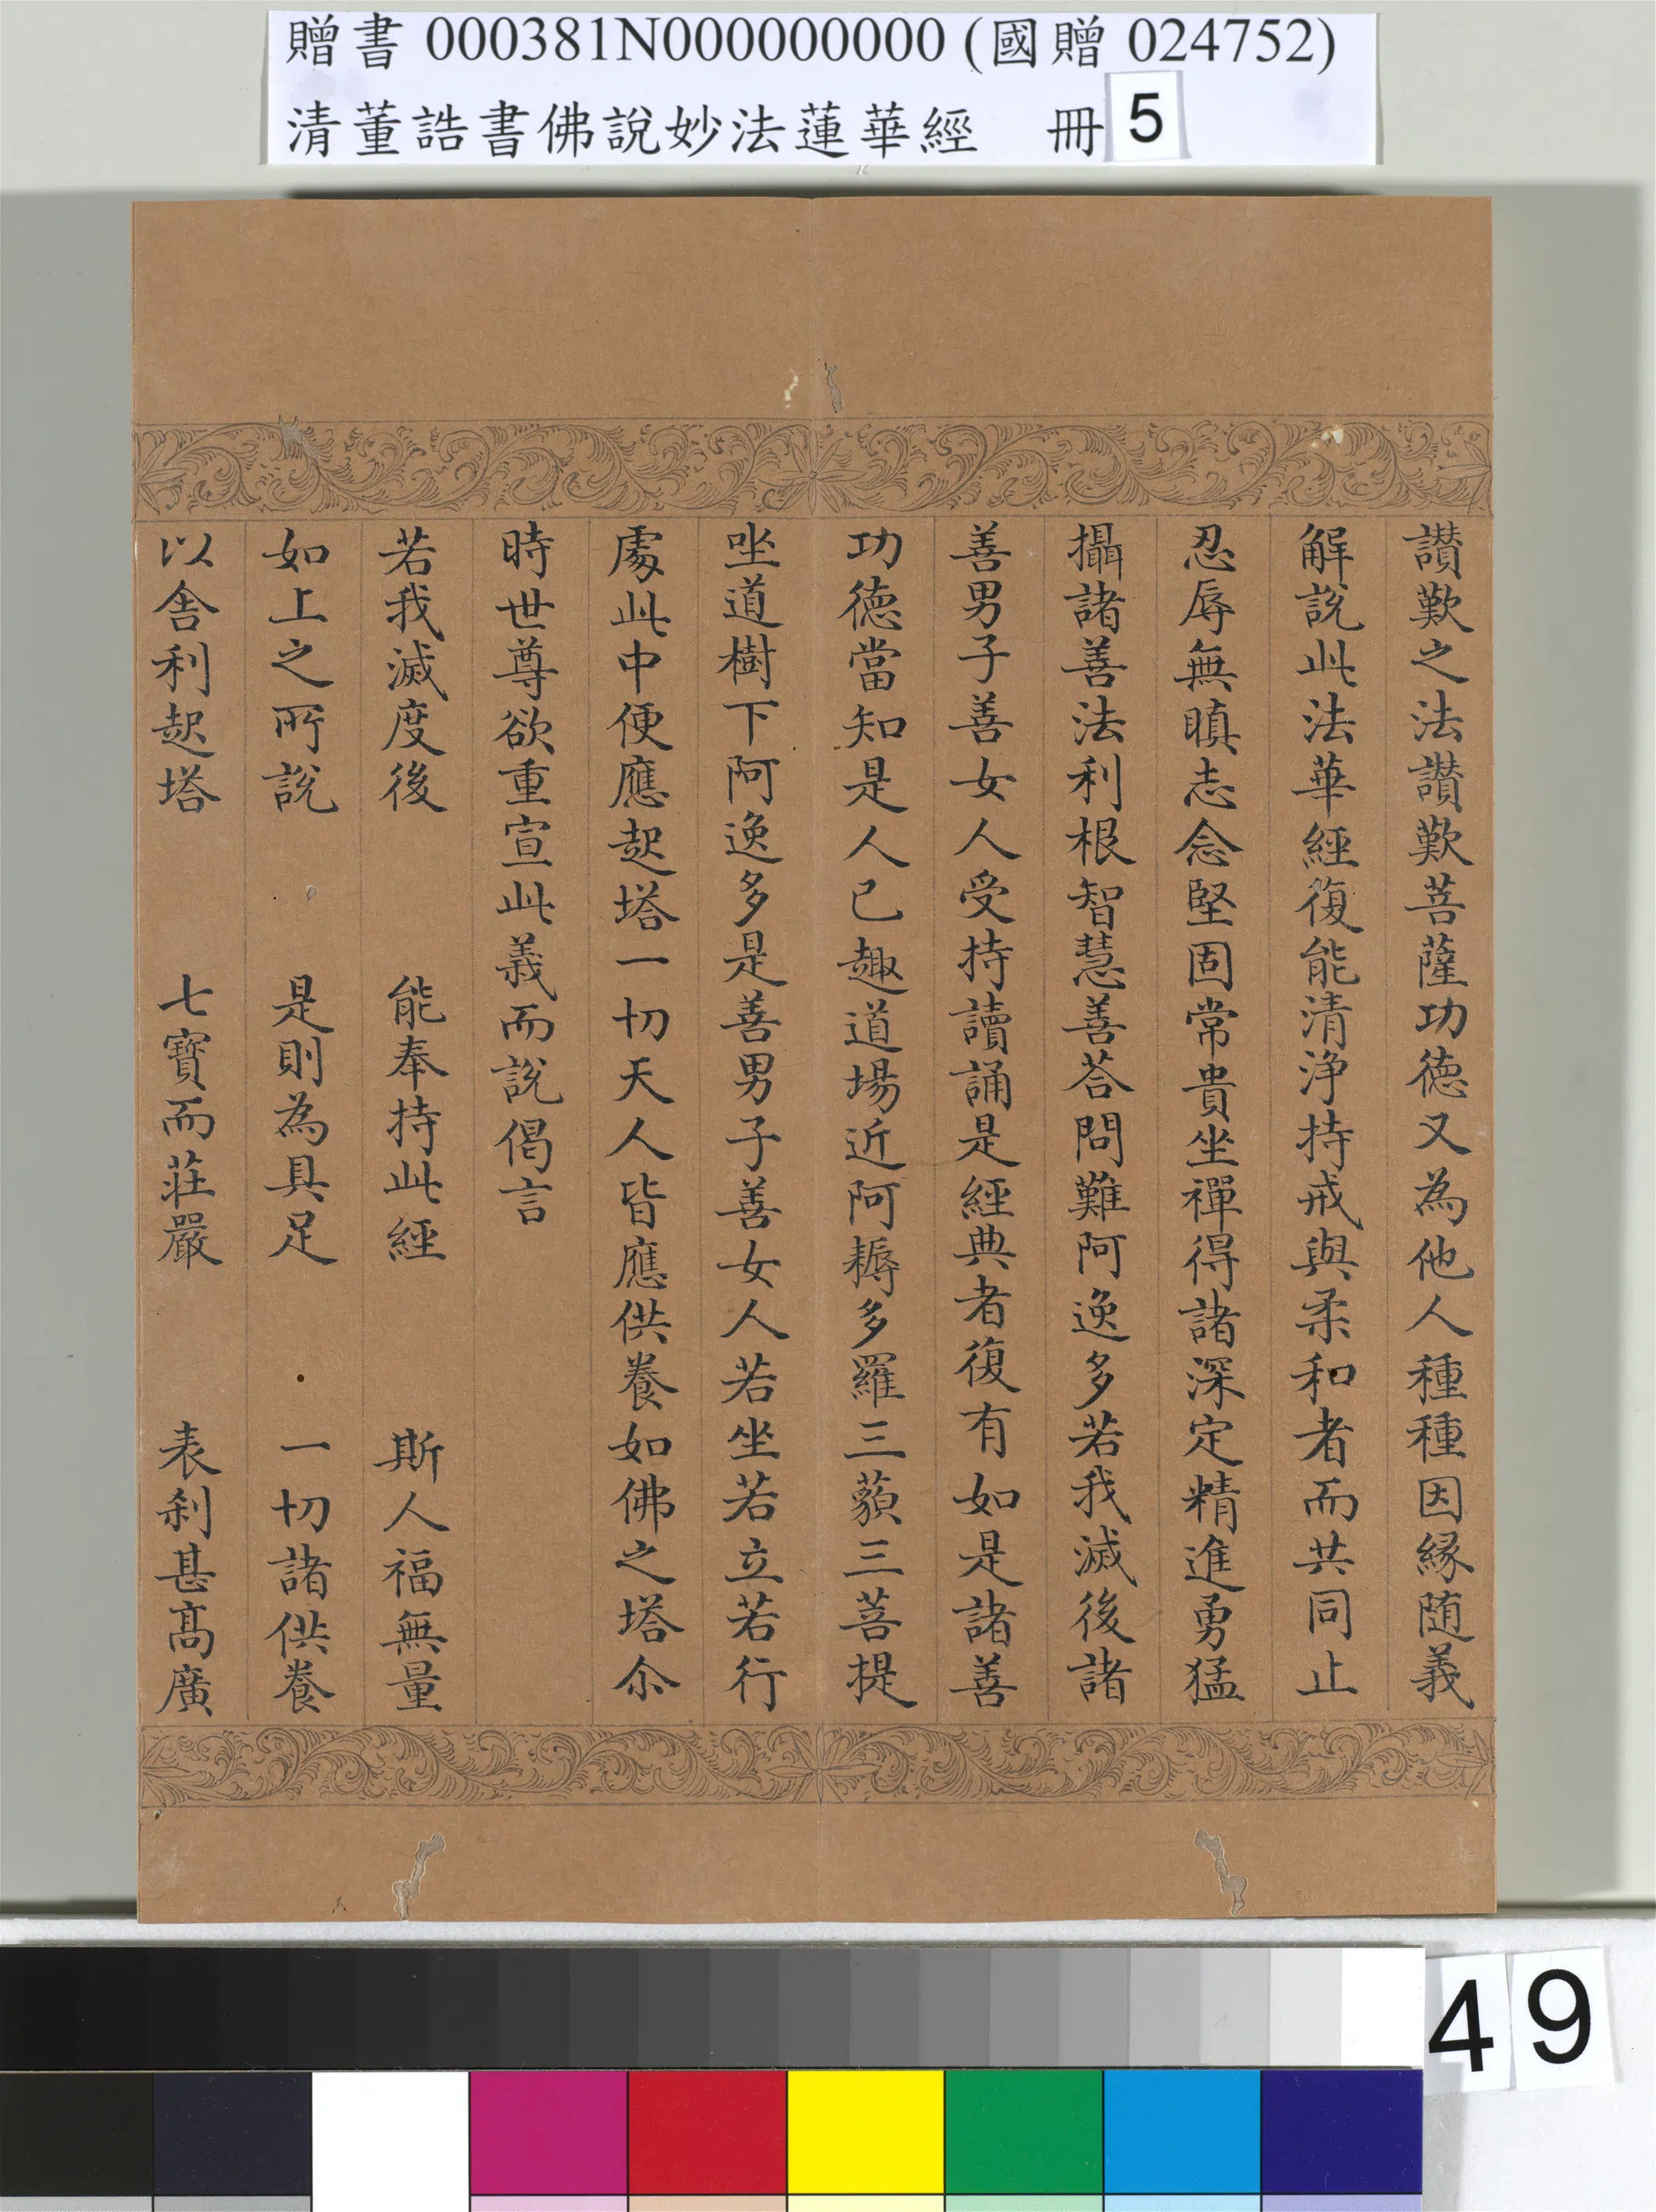 贈書 000381N000000000 (國贈 024752)
清董誥書佛說妙法蓮華經　冊 5
讃歎之法讃歎菩薩功德又為他人種種因緣随義
解說此法華經復能清淨持戒與柔和者而共同止
忍辱無瞋志念堅固常貴坐禪得諸深定精進勇猛
攝諸善法利根智慧善荅問難阿逸多若我滅後諸
善男子善女人受持讀誦是經典者復有如是諸善
功德當知是人已趣道場近阿耨多羅三藐三菩提
坐道樹下阿逸多是善男子善女人若坐若立若行
處此中便應起塔一切天人皆應供養如佛之塔尒
時世尊欲重宣此義而說偈言
若我滅度後　能奉持此經　斯人福無量
如上之所說　是則為具足　一切諸供養
以舎利起塔　七寶而莊嚴　表剎甚髙廣
49